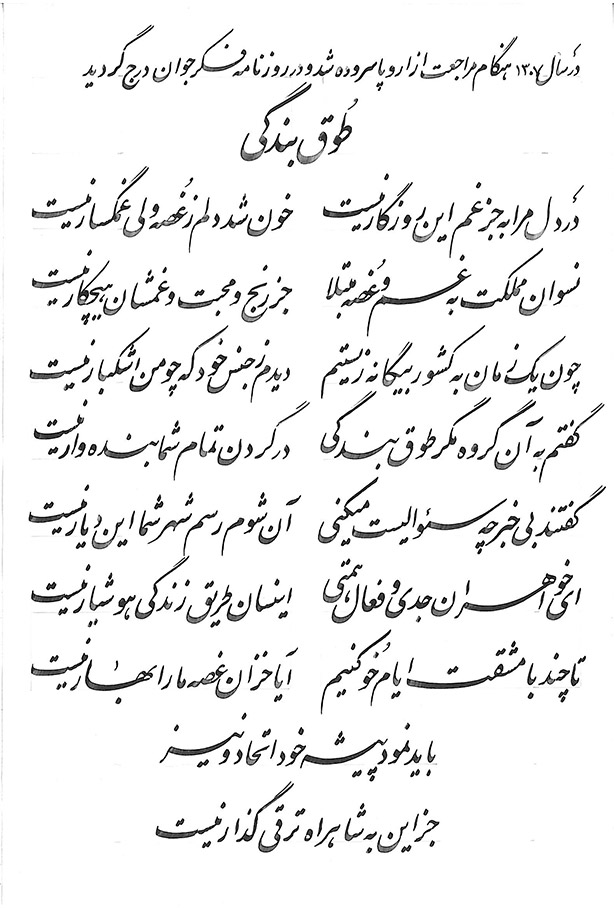 در سال ۱۳۰۷ هنگام مراجعت از اروپا سروده شد و در روزنامه فکر جوان درج گردید
طوق بندگی
در دل مرا به جز غم این روزگار نیست خون شد دلم ز غصه ولی غمگسار نیست
نسوان مملکت به غم و غصه مبتلا جز رنج و محبت و غمشان هیچکار نیست
چون یک زمان به کشور بیگانه زیستم دیدم ز جنس خود که چو من اشکبار نیست
گفتم به آن گروه مگر طوق بندگی در گردن تمام شما بنده وار نیست
گفتند بی خبر چه سئوالیست میکنی آن شوم رسم شهر شما این دیار نیست
ای خواهران جدی و فعال همتی اینسان طریق زندگی هوشیار نیست
تا چند با مشقت ایام خو کنیم آیا خزان غصه ما را بهار نیست
باید نمود پیشه خود اتحاد و نیز
جز این به شاهراه ترقی گذار نیست